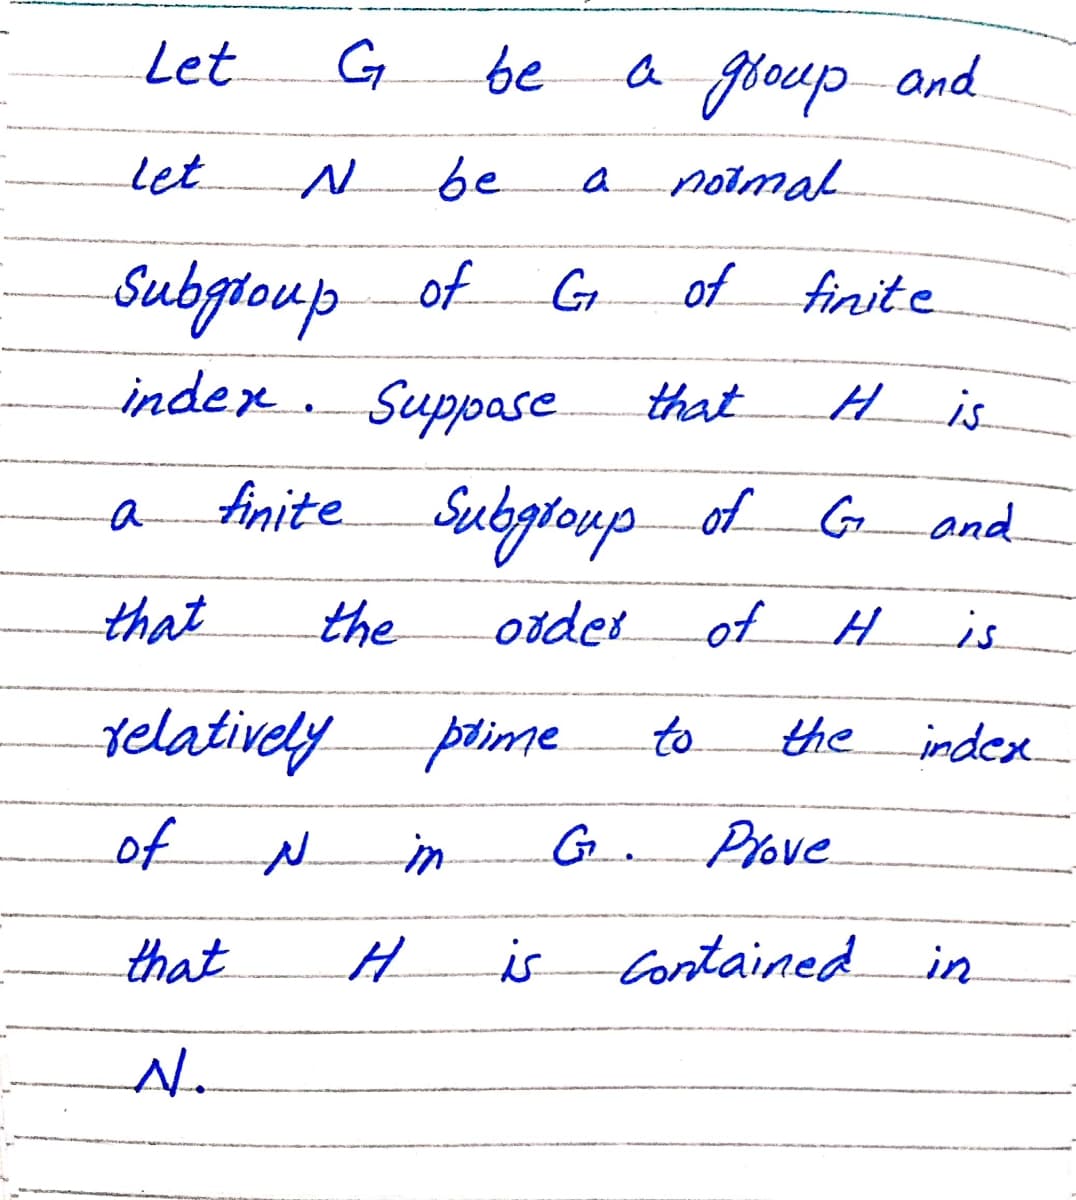 Let G be a group and
let N be a normal
Subgroup of G of finite
index. Suppose that H is
a finite Subgroup of G and
that the order of H is
relatively prime to the index
of N in G. Prove
that H is contained in
N.